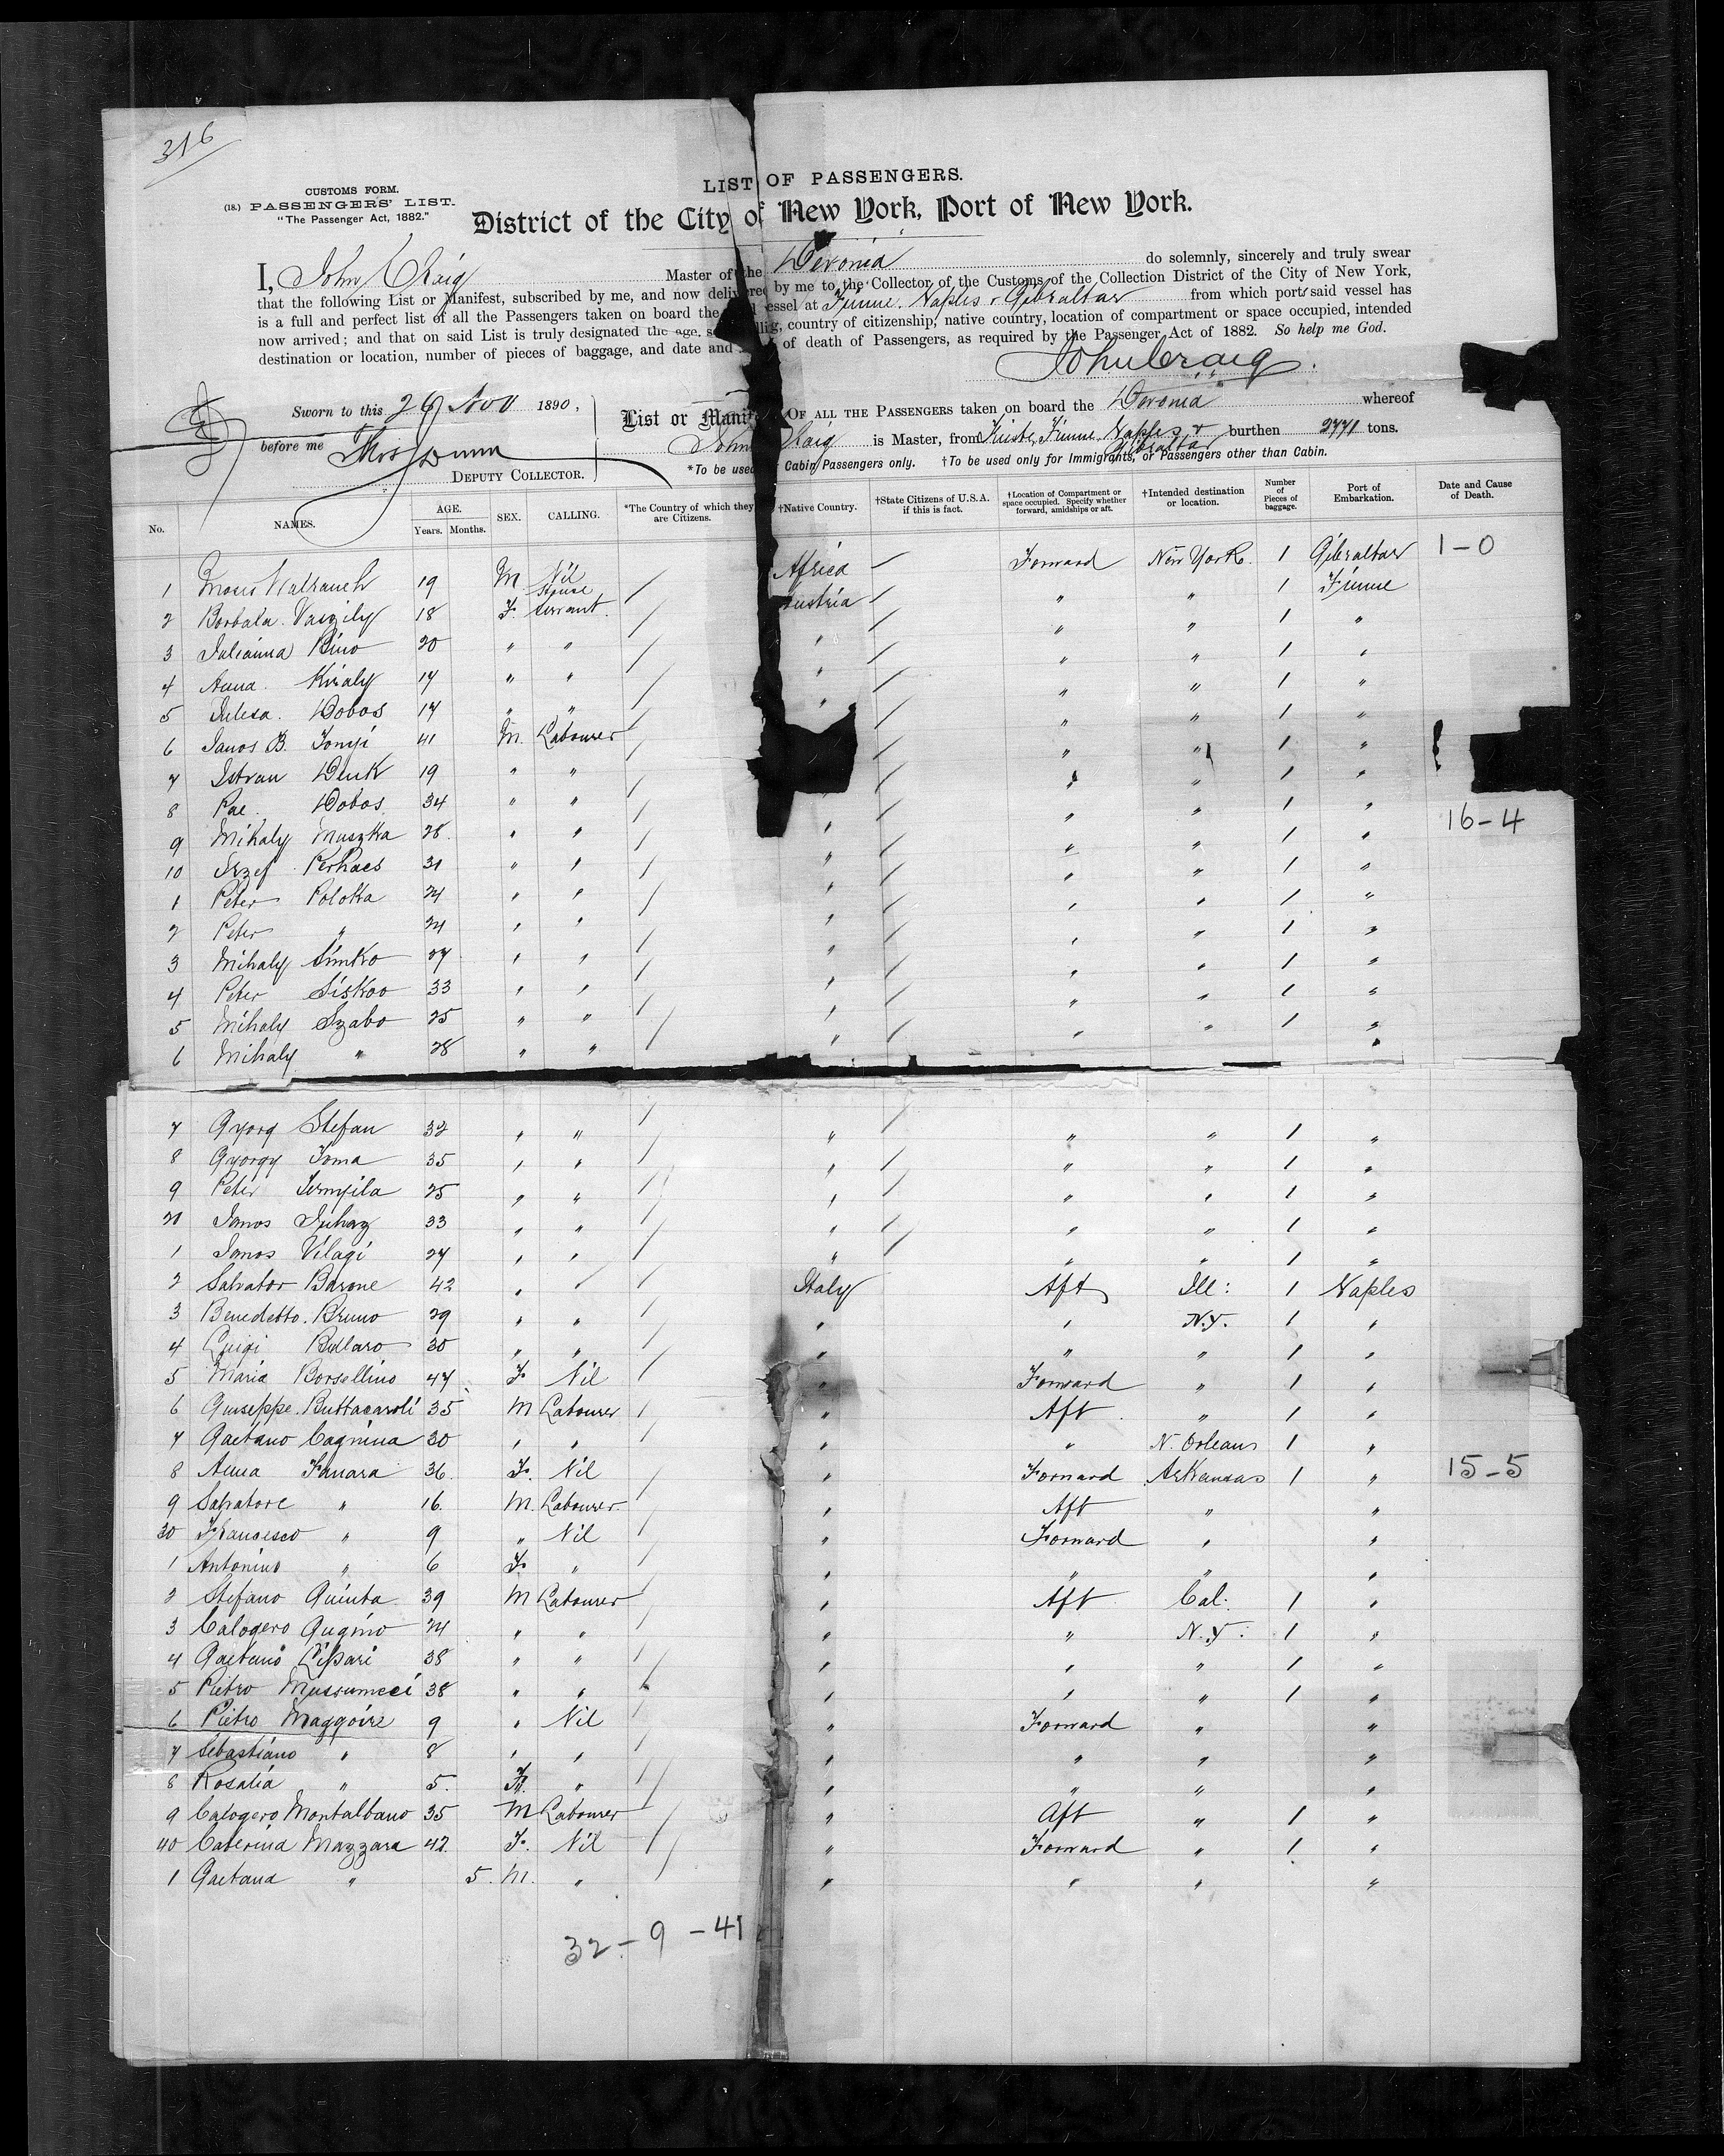 316
CUSTOMS FORM.
(18.) PASSENGERS' LIST.
"The Passenger Act, 1882."
LIST OF PASSENGERS.
District of the City of New York, Port of New York.
I, John Craig Master of the Devonia do solemnly, sincerely and truly swear
that the following List or Manifest, subscribed by me, and now delivered by me to the Collector of the Customs of the Collection District of the City of New York,
is a full and perfect list of all the Passengers taken on board the vessel at Fiume, Naples & Gibraltar from which ports said vessel has
now arrived; and that on said List is truly designated the age, country of citizenship, native country, location of compartment or space occupied, intended
destination or location, number of pieces of baggage, and date and of death of Passengers, as required by the Passenger Act of 1882. So help me God.
John Craig.
Sworn to this 26 Nov 1890,
before me Thos Dunn
DEPUTY COLLECTOR.
List or Manif OF ALL THE PASSENGERS taken on board the Devonia whereof
John Craig is Master, from Trieste, Fiume, Naples & Gibraltar burthen 2771 tons.
*To be used Cabin Passengers only. †To be used only for Immigrants, or Passengers other than Cabin.
No. NAMES. AGE. Years. Months. SEX. CALLING. *The Country of which they are Citizens. †Native Country. †State Citizens of U.S.A. if this is fact. †Location of Compartment or space occupied. Specify whether forward, amidships or aft. †Intended destination or location. Number of Pieces of baggage. Port of Embarkation. Date and Cause of Death.
1 Moses 19 M Nil / Africa / Forward New York. 1 Gibraltar 1-0
2 Borbala 18 F. House servant. / Austria / " " 1 Fiume
3 Julianna Bino 20 " " / " / " " 1 "
4 Anna Kiraly 17 " " / " / " " 1 "
5 Dobos 17 " " / " / " " 1 "
6 Janos B. Tonyi 41 M. Labourer / / " " 1 "
7 Istvan Denk 19 " " / / " " 1 "
8 Pal Dobos 34 " " / / " " 1 "
9 Mihaly Muszka 28 " " / " / " " 1 " 16-4
10 Jozef Perhacs 31 " " / " / " " 1 "
1 Peter Poloka 24 " " / " / " " 1 "
2 Peter " 24 " " / " / " " 1 "
3 Mihaly Simko 27 " " / " / " " 1 "
4 Peter Siskoo 33 " " / " / " " 1 "
5 Mihaly Szabo 25 " " / " / " " 1 "
6 Mihaly " 28 " " / " / " " 1 "
7 Gyorg Stefan 32 " " / " / " " 1 "
8 Gyorgy Toma 35 " " / " / " " 1 "
9 Peter 25 " " / " / " " 1 "
20 Janos Juhaz 33 " " / " / " " 1 "
1 Janos Vilagi 27 " " / " / " " 1 "
2 Salvator Barone 42 " " / Italy Aft Ill: 1 Naples
3 Benedetto Bruno 29 " " / " " N.Y. 1 "
4 Luigi 30 " " / " " " 1 "
5 Maria Borsellino 47 F Nil / " Forward " 1 "
6 Guiseppe Buttacavoli 35 M Labourer / " Aft " 1 "
7 Gaetano Cagnina 30 " " / " " N. Orleans 1 "
8 Anna Fanara 36 F. Nil / " Forward Arkansas 1 " 15-5
9 Salvatore " 16 M. Labourer / " Aft " "
30 Francesco " 9 " Nil / " Forward " "
1 Antonino " 6 F. " / " " " "
2 Stefano Guinta 39 M Labourer / " Aft Cal. 1 "
3 Calogero Gugino 24 " " / " " N.Y. 1 "
4 Gaetano Lipari 38 " " / " " " 1 "
5 Pietro Mussumeci 38 " " / " " " 1 "
6 Pietro Maggoire 9 " Nil / " Forward " "
7 Sebastiano " 8 " " / " " " "
8 Rosalia " 5. F. " / " " " "
9 Calogero Montalbano 35 M Labourer / " Aft " 1 "
40 Caterina Mazzara 42. F. Nil / " Forward " 1 "
1 Gaetana " 5. M. " / " " " "
32-9-41